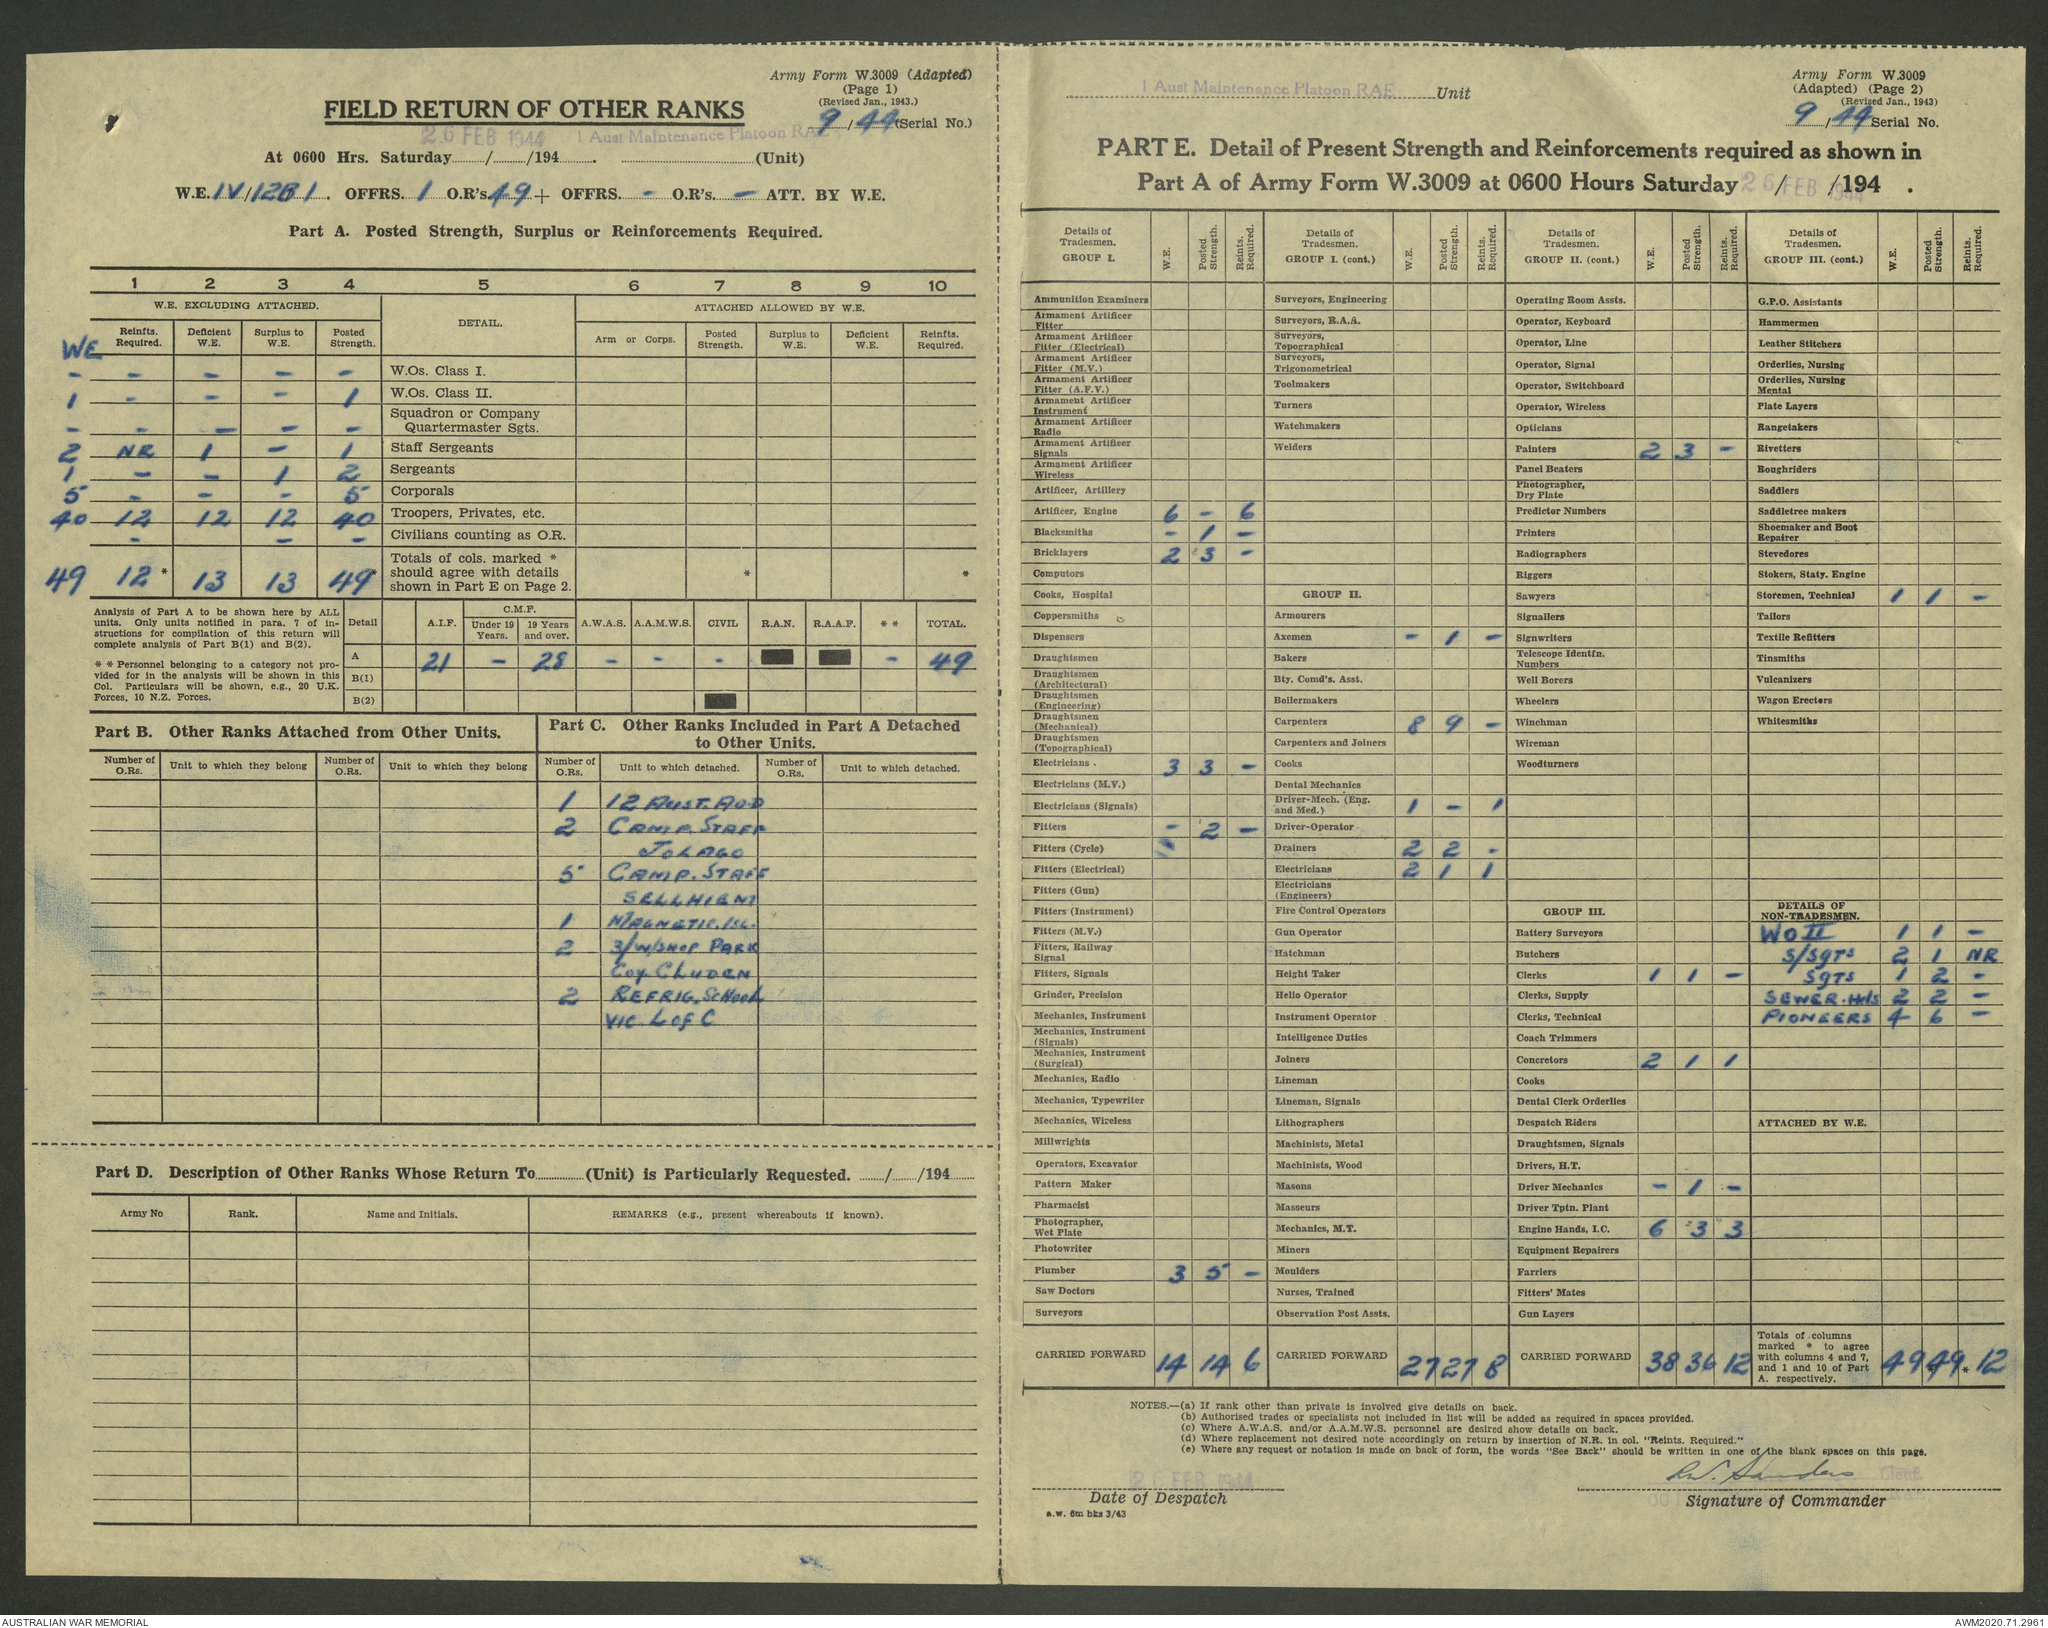 Army Form W.3009 (Adapted)
(Page 1)
(Revised Jan., 1943.)
9/44 (Serial No.)
FIELD RETURN OF OTHER RANKS
26 FEB 1944 1 Aust Maintenance Platoon RAE
At 0600 Hrs. Saturday......./......./194....... . (Unit)
W.E. IV/12B1. OFFRS. 1 O.R's. 49 + OFFRS. - O.R's. - ATT. BY W.E.
Part A. Posted Strength, Surplus or Reinforcements Required.
1 2 3 4 5 6 7 8 9 10
W.E. EXCLUDING ATTACHED. DETAIL. ATTACHED ALLOWED BY W.E.
WE Reinfts. Required. Deficient W.E. Surplus to W.E. Posted Strength. Arm or Corps. Posted Strength. Surplus to W.E. Deficient W.E. Reinfts. Required.
- - - - - W.Os. Class I.
1 - - - 1 W.Os. Class II.
- - - - - Squadron or Company Quartermaster Sgts.
2 NR 1 - 1 Staff Sergeants
1 - - 1 2 Sergeants
5 - - - 5 Corporals
40 12 12 12 40 Troopers, Privates, etc.
- - - Civilians counting as O.R.
49 12 * 13 13 49 * Totals of cols. marked * should agree with details shown in Part E on Page 2. * *
Analysis of Part A to be shown here by ALL units. Only units notified in para. 7 of instructions for compilation of this return will complete analysis of Part B(1) and B(2).
* * Personnel belonging to a category not provided for in the analysis will be shown in this Col. Particulars will be shown, e.g., 20 U.K. Forces, 10 N.Z. Forces.
Detail A.I.F. C.M.F. Under 19 Years. 19 Years and over. A.W.A.S. A.A.M.W.S. CIVIL R.A.N. R.A.A.F. * * TOTAL.
A 21 - 28 - - - - 49
B(1)
B(2)
Part B. Other Ranks Attached from Other Units.
Part C. Other Ranks Included in Part A Detached to Other Units.
Number of O.Rs. Unit to which they belong Number of O.Rs. Unit to which they belong Number of O.Rs. Unit to which detached. Number of O.Rs. Unit to which detached.
1 12 AUST. AOD
2 CAMP. STAFF
JOLAGO
5 CAMP. STAFF
SELLHIEM
1 MAGNETIC. ISL.
2 3/W/SHOP PARK
Coy CLUDEN
2 REFRIG. SCHOOL
VIC. L of C
Part D. Description of Other Ranks Whose Return To.............(Unit) is Particularly Requested. ......./......./194.......
Army No Rank. Name and Initials. REMARKS (e.g., present whereabouts if known).
1 Aust Maintenance Platoon RAE Unit
Army Form W.3009
(Adapted) (Page 2)
(Revised Jan., 1943)
9/44 Serial No.
PART E. Detail of Present Strength and Reinforcements required as shown in
Part A of Army Form W.3009 at 0600 Hours Saturday 26 FEB 1944 / /194 .
Details of Tradesmen. GROUP I. W.E. Posted Strength. Reints. Required.
Ammunition Examiners
Armament Artificer Fitter
Armament Artificer Fitter (Electrical)
Armament Artificer Fitter (M.V.)
Armament Artificer Fitter (A.F.V.)
Armament Artificer Instrument
Armament Artificer Radio
Armament Artificer Signals
Armament Artificer Wireless
Artificer, Artillery
Artificer, Engine 6 - 6
Blacksmiths - 1 -
Bricklayers 2 3 -
Computors
Cooks, Hospital
Coppersmiths
Dispensers
Draughtsmen
Draughtsmen (Architectural)
Draughtsmen (Engineering)
Draughtsmen (Mechanical)
Draughtsmen (Topographical)
Electricians 3 3 -
Electricians (M.V.)
Electricians (Signals)
Fitters - 2 -
Fitters (Cycle)
Fitters (Electrical)
Fitters (Gun)
Fitters (Instrument)
Fitters (M.V.)
Fitters, Railway Signal
Fitters, Signals
Grinder, Precision
Mechanics, Instrument
Mechanics, Instrument (Signals)
Mechanics, Instrument (Surgical)
Mechanics, Radio
Mechanics, Typewriter
Mechanics, Wireless
Millwrights
Operators, Excavator
Pattern Maker
Pharmacist
Photographer, Wet Plate
Photowriter
Plumber 3 5 -
Saw Doctors
Surveyors
CARRIED FORWARD 14 14 6
Details of Tradesmen. GROUP I. (cont.) W.E. Posted Strength. Reints. Required.
Surveyors, Engineering
Surveyors, R.A.A.
Surveyors, Topographical
Surveyors, Trigonometrical
Toolmakers
Turners
Watchmakers
Welders
GROUP II.
Armourers
Axemen - 1 -
Bakers
Bty. Comd's. Asst.
Boilermakers
Carpenters 8 9 -
Carpenters and Joiners
Cooks
Dental Mechanics
Driver-Mech. (Eng. and Med.) 1 - 1
Driver-Operator
Drainers 2 2 -
Electricians 2 1 1
Electricians (Engineers)
Fire Control Operators
Gun Operator
Hatchman
Height Taker
Helio Operator
Instrument Operator
Intelligence Duties
Joiners
Lineman
Lineman, Signals
Lithographers
Machinists, Metal
Machinists, Wood
Masons
Masseurs
Mechanics, M.T.
Miners
Moulders
Nurses, Trained
Observation Post Assts.
CARRIED FORWARD 27 27 8
Details of Tradesmen. GROUP II. (cont.) W.E. Posted Strength. Reints. Required.
Operating Room Assts.
Operator, Keyboard
Operator, Line
Operator, Signal
Operator, Switchboard
Operator, Wireless
Opticians
Painters 2 3 -
Panel Beaters
Photographer, Dry Plate
Predictor Numbers
Printers
Radiographers
Riggers
Sawyers
Signallers
Signwriters
Telescope Identfn. Numbers
Well Borers
Wheelers
Winchman
Wireman
Woodturners
GROUP III.
Battery Surveyors
Butchers
Clerks 1 1 -
Clerks, Supply
Clerks, Technical
Coach Trimmers
Concretors 2 1 1
Cooks
Dental Clerk Orderlies
Despatch Riders
Draughtsmen, Signals
Drivers, H.T.
Driver Mechanics - 1 -
Driver Tptn. Plant
Engine Hands, I.C. 6 3 3
Equipment Repairers
Farriers
Fitters' Mates
Gun Layers
CARRIED FORWARD 38 36 12
Details of Tradesmen. GROUP III. (cont.) W.E. Posted Strength. Reints. Required.
G.P.O. Assistants
Hammermen
Leather Stitchers
Orderlies, Nursing
Orderlies, Nursing Mental
Plate Layers
Rangetakers
Rivetters
Roughriders
Saddlers
Saddletree makers
Shoemaker and Boot Repairer
Stevedores
Stokers, Staty. Engine
Storemen, Technical 1 1 -
Tailors
Textile Refitters
Tinsmiths
Vulcanizers
Wagon Erectors
Whitesmiths
DETAILS OF NON-TRADESMEN.
WO II 1 1 -
S/SGTS 2 1 NR
SGTS 1 2 -
SEWER. Hds 2 2 -
PIONEERS 4 6 -
ATTACHED BY W.E.
Totals of columns marked * to agree with columns 4 and 7, and 1 and 10 of Part A. respectively. 49 49 * 12
NOTES.—(a) If rank other than private is involved give details on back.
(b) Authorised trades or specialists not included in list will be added as required in spaces provided.
(c) Where A.W.A.S. and/or A.A.M.W.S. personnel are desired show details on back.
(d) Where replacement not desired note accordingly on return by insertion of N.R. in col. "Reints. Required."
(e) Where any request or notation is made on back of form, the words "See Back" should be written in one of the blank spaces on this page.
26 FEB 1944
Date of Despatch
a.w. 6m bks 3/43
RW. Sanders Lieut.
Signature of Commander
AUSTRALIAN WAR MEMORIAL
AWM2020.71.2961